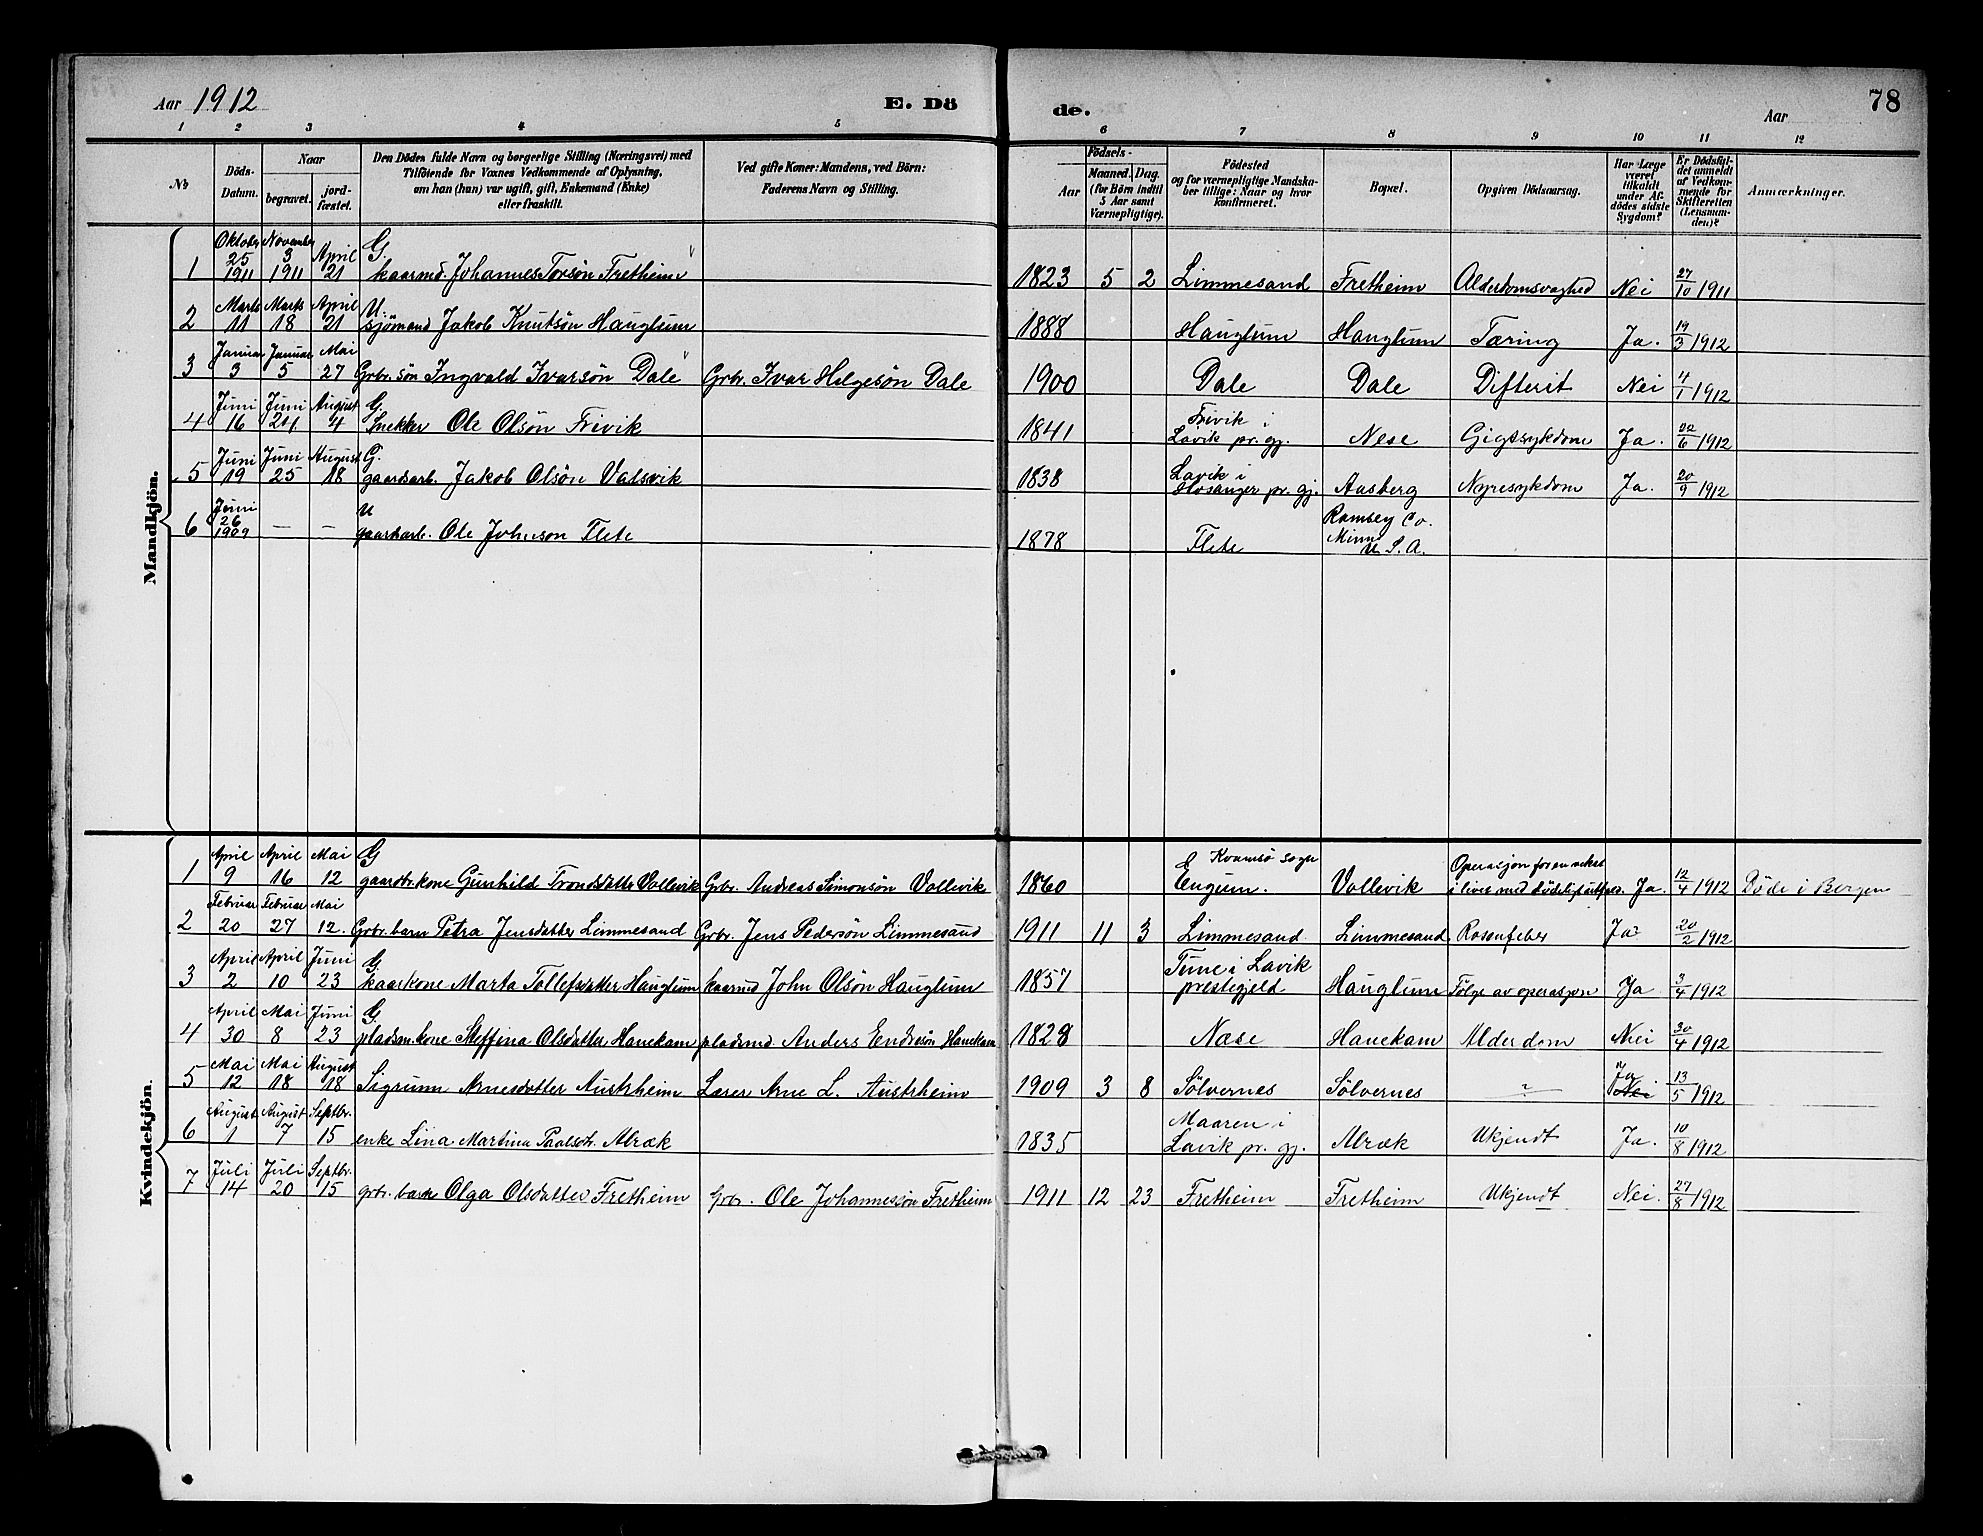 Aar 1912 E. Dö de. Aar 78
1 2 3 4 5 6 7 8 9 10 11 12
No Döds-Datum. Naar begravet. jord-fæstet. Den Dödes fulde Navn og borgerlige Stilling (Næringsvei) med Tilföiende for Voxnes Vedkommende af Oplysning, om han (hun) var ugift, gift, Enkemand (Enke) eller fraskilt. Ved gifte Koner: Mandens, ved Börn: Faderens Navn og Stilling. Födsels- Aar Maaned. Dag. (for Börn indtil 5 Aar samt Værnepligtige). Födested og for værnepligtige Mandskaber tillige: Naar og hvor konfirmeret. Bopæl. Opgiven Dödsaarsag. Har Læge været tilkaldt under Afdödes sidste Sygdom? Er Dödsfaldet anmeldt af Vedkommende for Skifteretten (Lensmanden)? Anmærkninger.
Mandkjön.
1 Oktober 25 1911 November 3 1911 April 21 G. kaarmd. Johannes Torsön Fretheim 1823 5 2 Limmesand Fretheim Alderdomsvaghed Nei 27/10 1911
2 Marts 11 Marts 18 April 21 U. sjömand Jakob Knutsön Hauglum 1888 Hauglum Hauglum Tæring Ja. 19/3 1912
3 Januar 3 Januar 5 Mai 27 Grbr. sön Ingvald Ivarsön Dale Grbr. Ivar Helgesön Dale 1900 Dale Dale Difterit Nei 4/1 1912
4 Juni 16 Juni 24. August 4 G. Snekker Ole Olsön Trivik 1841 Trivik i Lavik pr. gj. Nese Gigtsykdom Ja. 22/6 1912
5 Juni 19 Juni 25 August 18 G. gaardsarb. Jakob Olsön Valsvik 1838 Lavik i pr. gj. Aasberg Nyresykdom Ja. 20/9 1912
6 Juni 26 1909 — — U gaardsarb. Ole Johnson Flete 1878 Flete Ramsey Co. Minn U. S. A.
Kvindekjön.
1 April 9 April 16 Mai 12 G gaardbr. kone Gunhild Trondsdatter Vollevik Grbr. Andreas Simonsön Vollevik 1860 Kvamsö sogn Engum. Vollevik Operasjon for en vekst i livet med dödelig utfald. Ja. 12/4 1912 Döde i Bergen
2 Februar 20 Februar 27 Mai 12. Grbr. barn Petra Jensdatter Limmesand Grbr. Jens Pedersön Limmesand 1911 11 3 Limmesand. Limmesand Rosenfeber Ja 20/2 1912
3 April 2 April 10 Juni 23 G kaarkone Marta Tollefsdatter Hauglum kaarmd John Olsön Hauglum 1857 Tune i Lavik prestegjeld Hauglum Følge av operasjon Ja 3/4 1912
4 April 30 Mai 8 Juni 23 G. pladsm. kone Steffina Olsdatter Hanekam pladsmd. Anders Endresön Hanekam 1828 Næse Hanekam Alderdom Nei 30/4 1912
5 Mai 12 Mai 18 August 18 Sigrunn Arnesdatter Austrheim Lærer Arne L. Austrheim 1909 3 8 Sölvernes Sölvernes ? Ja Nei 13/5 1912
6 August 1 August 7 Septbr. 15 enke Lina Martina Paalsdt. Alræk 1835 Maaren i Lavik pr. gj. Alræk Ukjendt Ja. 10/8 1912
7 Juli 14 Juli 20 Septbr. 15 grbr. barn Olga Olsdatter Fretheim Grbr. Ole Johannessön Fretheim 1911 12 23 Fretheim Fretheim Ukjendt Nei. 27/8 1912